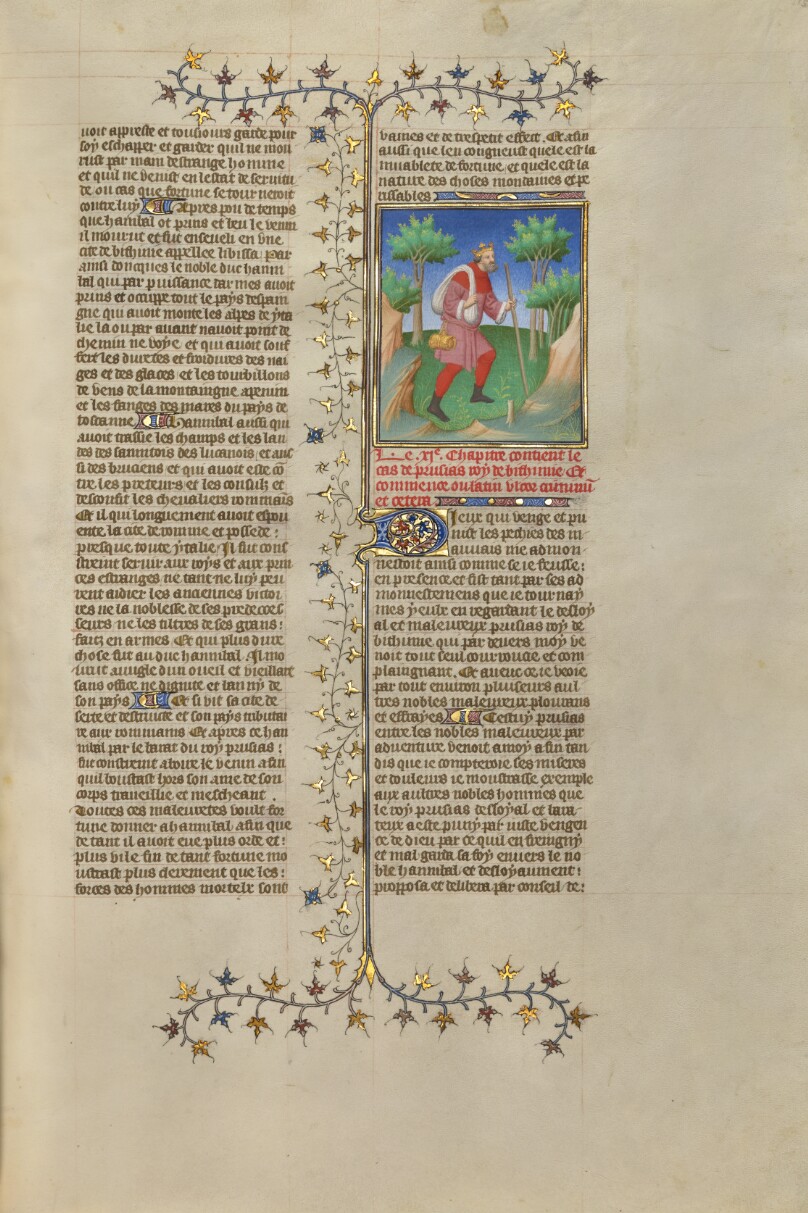 uoit appreste et tousiours garde pour
soy eschapper et garder quil ne mou
rust par main destrange homme
et quil ne venist en lestat de seruitu
de ou cas que fortune se tourneroit
contre luy Apres pou de temps
que hanibal ot prins et beu le venin
il mourut et fut enseueli en vne
cite de bithinie appellee libissa par
ainsi doncques le noble duc hanni
bal qui par puissance darmes auoit
prins et occuppe tout le pays despai
gne qui auoit monte les alpes de yta
lie la ou par auant nauoit point de
chemin ne voye et qui auoit souf
fert les duretes et froidures des nai
ges et des glaces et les tourbillons
de vens de la montaigne apenin
et les fanges des mares du pays de
toscanne Hannibal aussi qui
auoit trassie les champs et les lan
des des samnitois des lucanois et aus
si des bruciens et qui auoit este cō
tre les preteurs et les consulz et
desconfit les cheualiers rommais
Et il qui longuement auoit espou
ente la cite de romme et possede
presque toute ytalie Il fut cons
traint seruir aux roys et aux prin
ces estranges ne tant ne luy peu
rent aidier les anciennes victoi
res ne la noblesse de ses predeces
seurs ne les tiltres de ses grans
faiz en armes Et qui plus dure
chose fut au duc hannibal Il mo
urut auugle dun oueil et vieillart
sans office ne dignite et banny de
son pays Et si vit sa cite de
serte et destruicte et son pays tributai
re aux rommains Et apres ce han
nibal par le barat du roy prusias
fut constraint a boire le venin afin
quil boutast hors son ame de son
corps traueillie et mescheant
Toutes ces maleuretes voult for
tune donner a hannibal afin que
de tant il auoit eue plus orde et
plus vile fin de tant fortune mo
nstrast plus clerement que les
forces des hommes mortelz sont
vaines et de trespetit effect. Et afin
aussi que len congneust quele est la
muablete de fortune et quele est la
nature des choses mondaines et pe
rissables
Le .xie. Chapitre contient le
cas de prusias roy de bithinie Et
commence ou latin vltor criminum
et cetera
Dieux qui venge et pu
nist les pechies des m
auuais me admon
nestoit ainsi comme se ie feusse
en presence et fist tant par ses ad
monnestemens que ie tournay
mes yeulx en regardant le desloy
al et maleureux prusias roy de
bithinie qui par deuers moy ve
noit tout seul courroucie et com
plaingnant. Et auecques ce ie veoie
par tout enuiron plusieurs aul
tres nobles maleureux plourans
et effrayes Cestuy prusias
entre les nobles maleureux par
aduenture venoit a moy afin tan
dis que ie compteroie ses miseres
et douleurs ie monstrasse exemple
aux aultres nobles hommes que
le roy prusias desloyal et bara
teux a este puny par iuste vengen
ce de dieu par ce quil enfreigny
et mal garda sa foy enuers le no
ble hannibal et desloyaument
proposa et delibera par conseil de